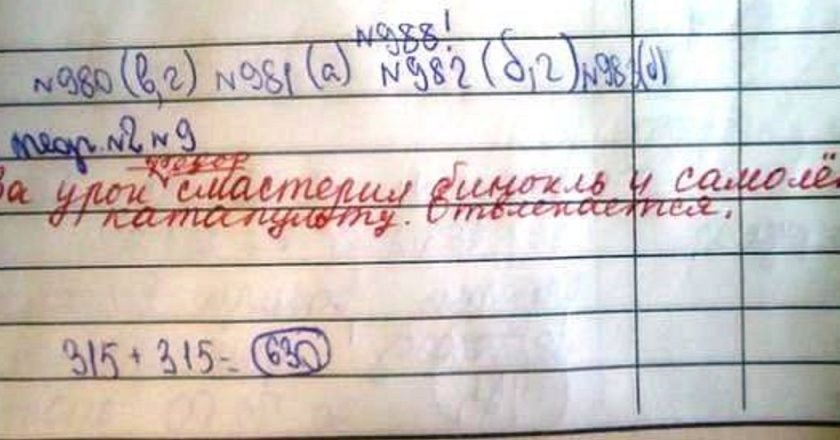 №988!
№980 (в,г) №981 (а) №982 (б,г) №983(б)
теор. №2 №9
Федор
За урок смастерил бинокль и самолё
катапульту. Отвлекается.
315 + 315 = 630